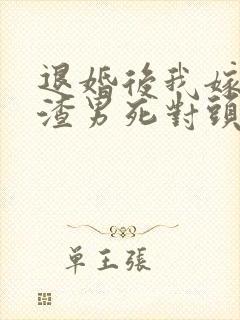 退婚後我嫁
渣男死對頭
单王張